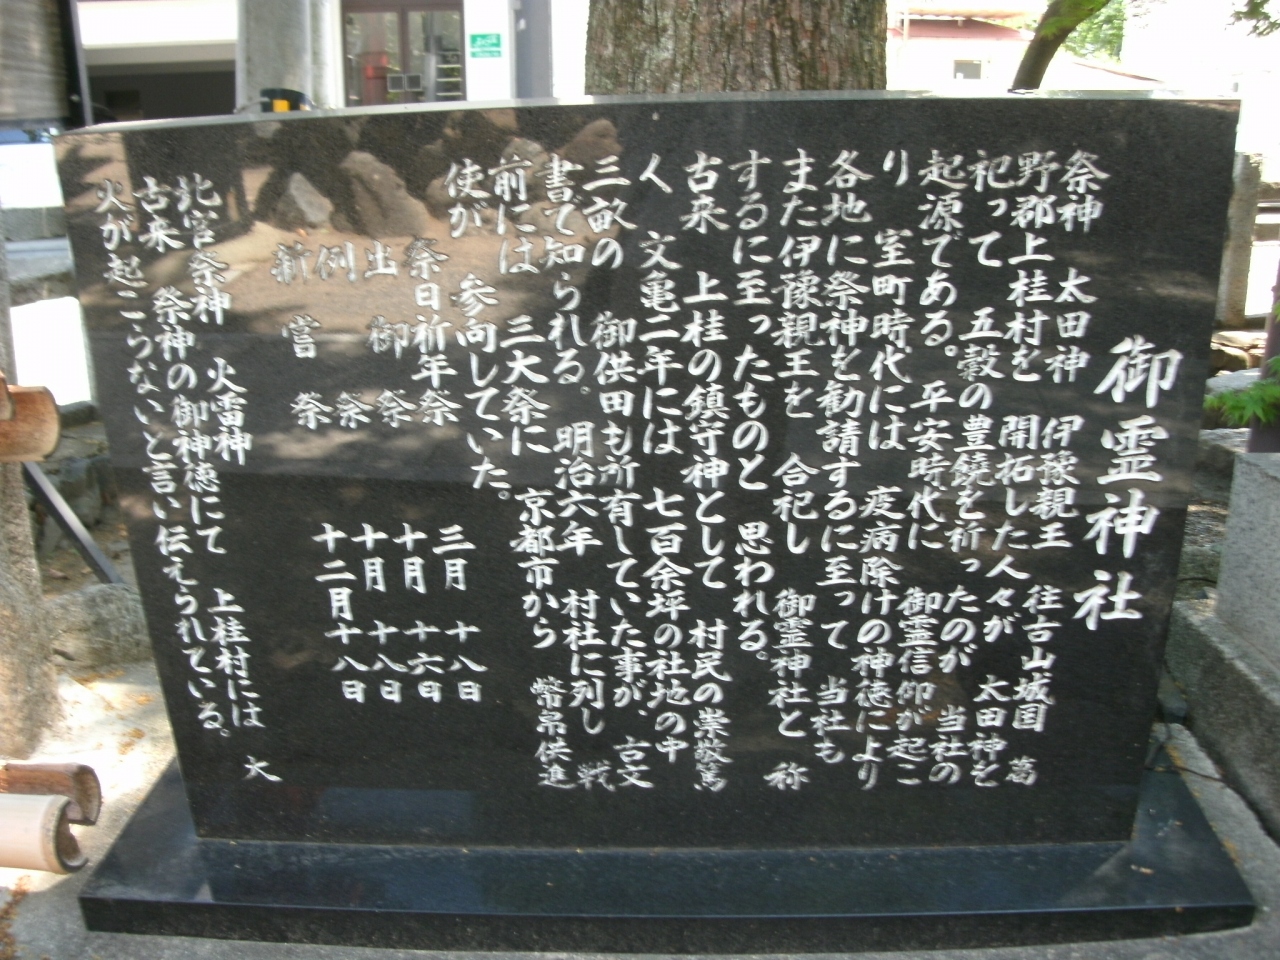 御霊神社
祭神　太田神　伊豫親王　往古山城国　葛
野郡上桂村を　開拓した人々が　太田神を
祀って　五穀の豊饒を祈ったのが　当社の
起源である。平安時代に　御霊信仰が起こ
り　室町時代には　疫病除けの神徳により
各地に祭神を勧請するに至って　当社も
また伊豫親王を　合祀し　御霊神社と　称
するに至ったものと　思われる。
古来　上桂の鎮守神として　村民の崇敬篤
く　文亀二年には　七百余坪の社地の中
三畝の　御供田も所有していた事が、古文
書で知られる。明治六年　村社に列し　戦
前には　三大祭に　京都市から　幣帛供進
使が　参向していた。
祭日祈年祭　三月　十八日
出御祭　十月　十六日
例祭　十月　十八日
新嘗祭　十二月十八日
北宮祭神　火雷神　上桂村には　大
古来　祭神の御神徳にて
火が起こらないと言い伝えられている。